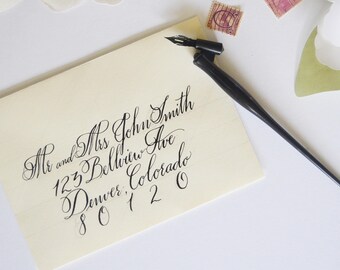 Mr and Mrs John Smith
123 Bellview Ave
Denver, Colorado
80120